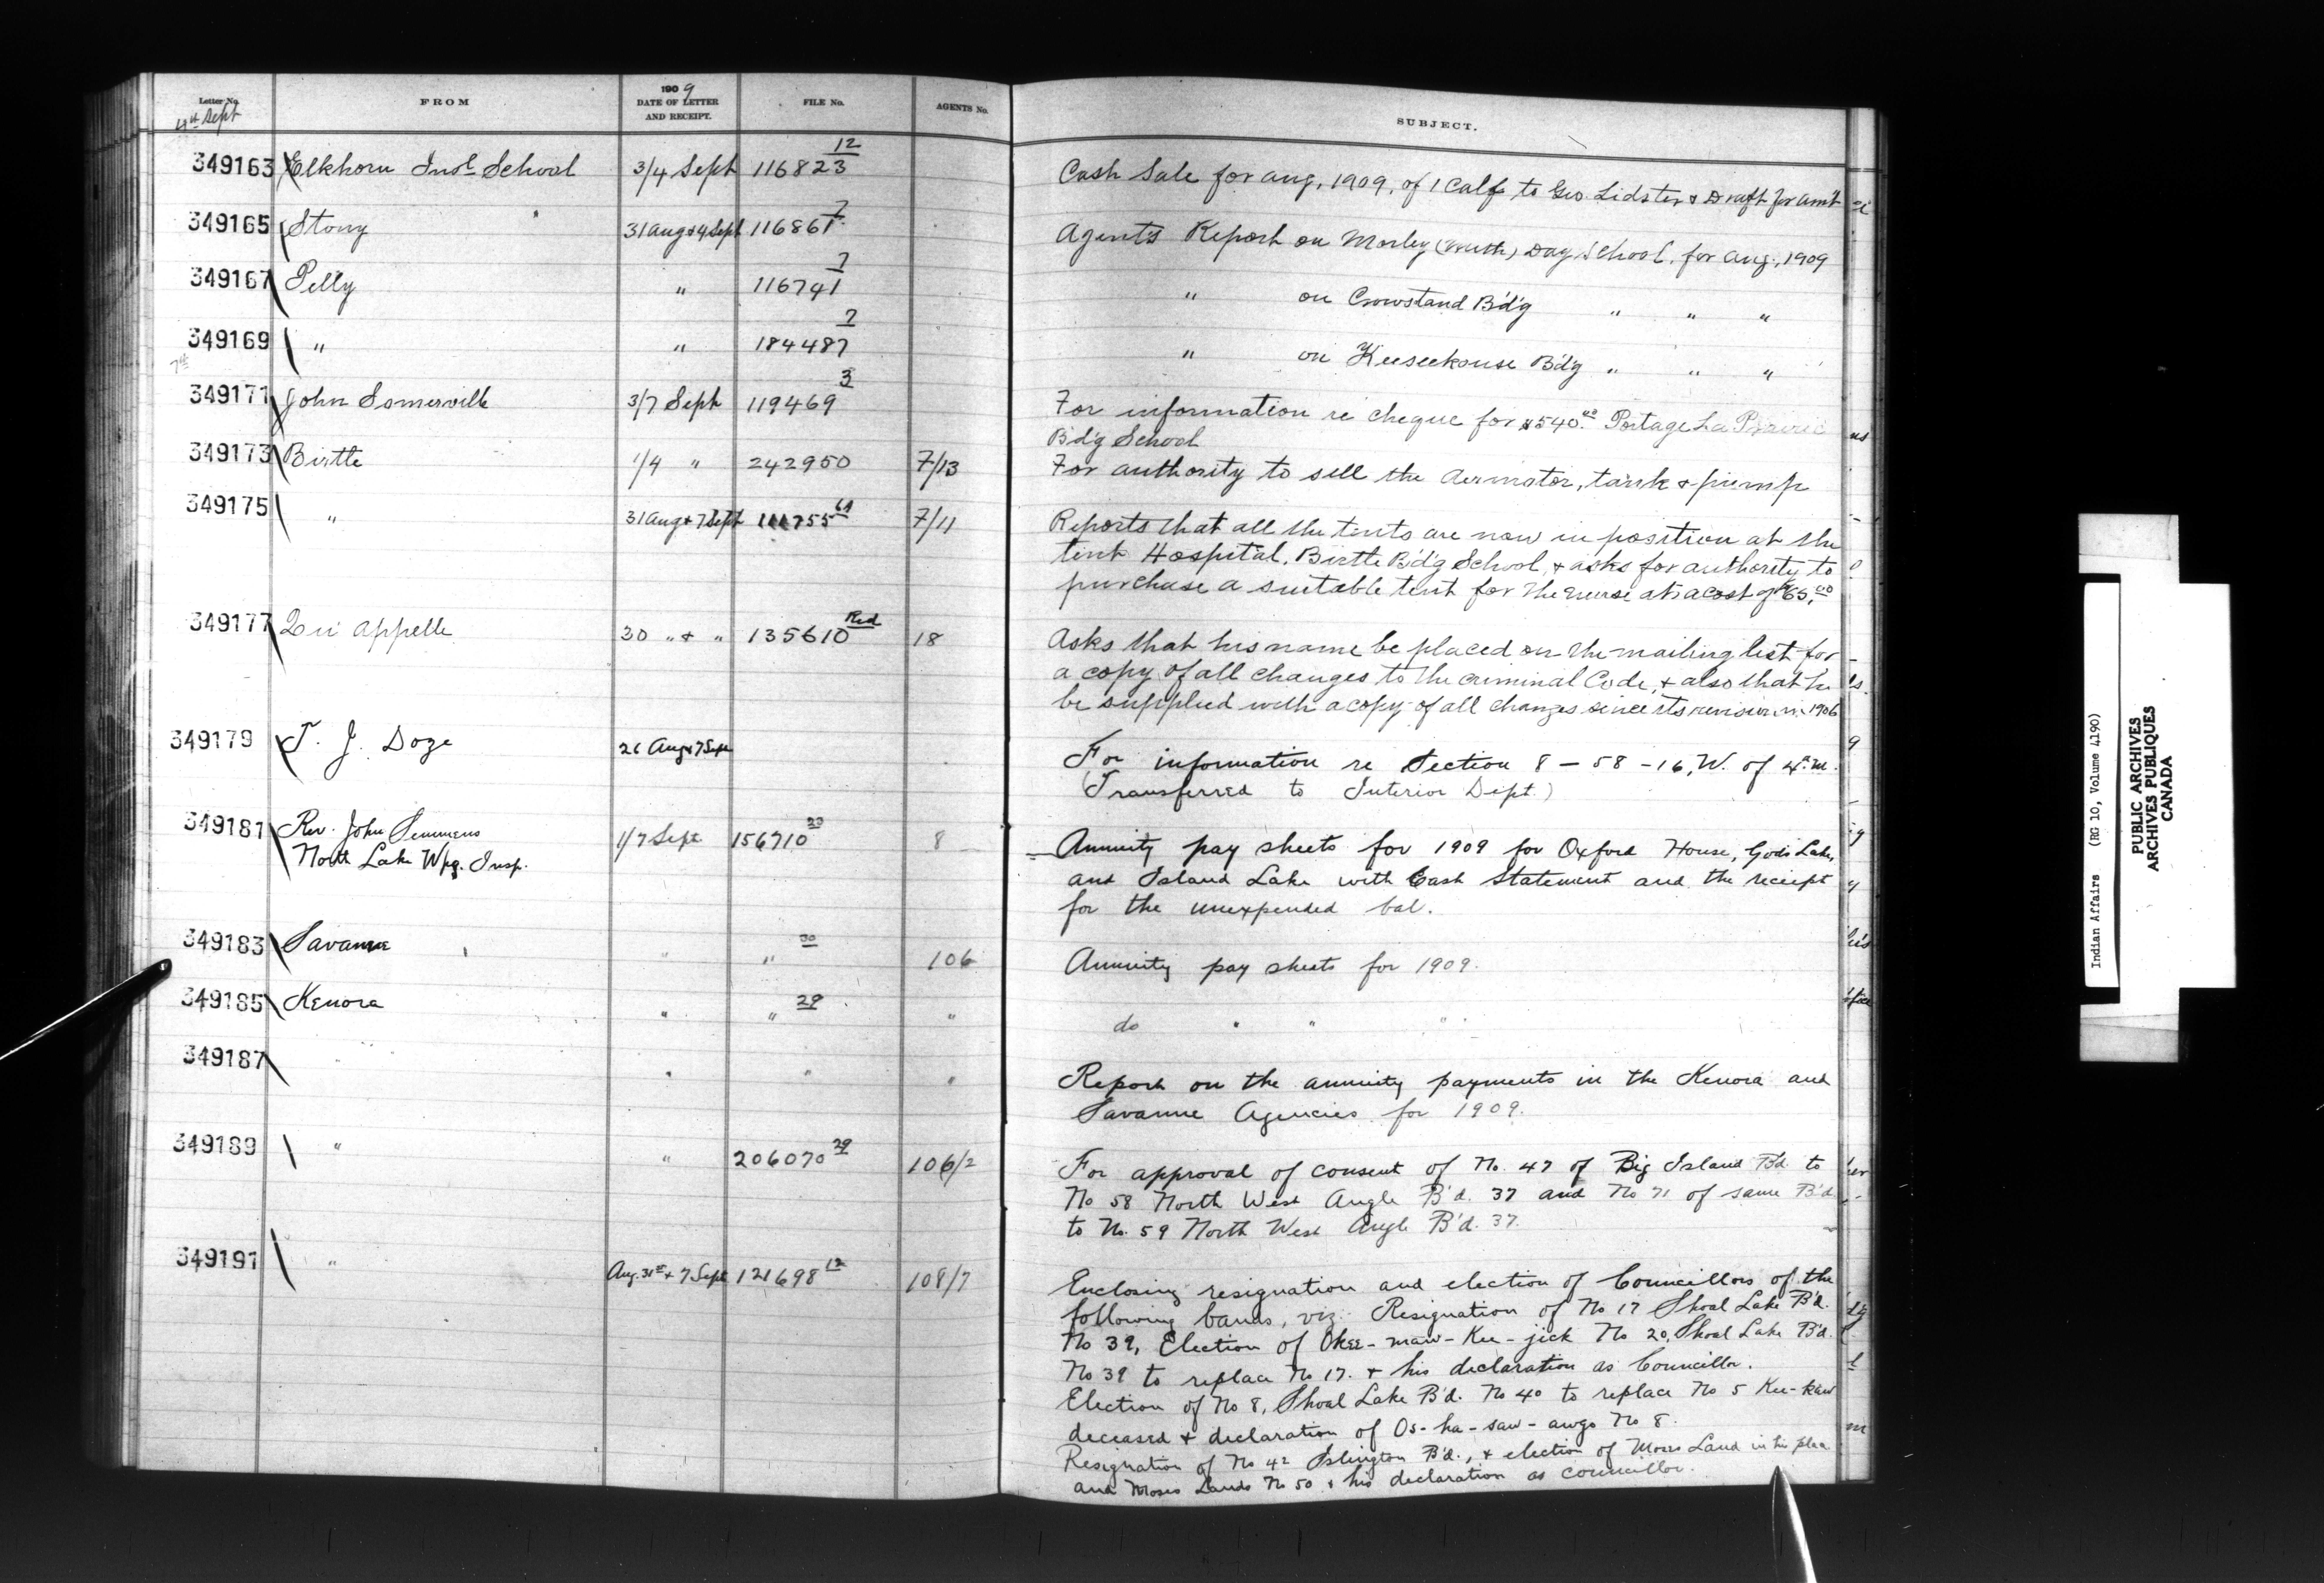 Letter No. FROM 1909 DATE OF LETTER AND RECEIPT. FILE No. AGENTS No. SUBJECT.
4th Sept
349163 Elkhorn Indl School 3/4 Sept 116823 12 Cash Sale for Aug, 1909, of 1 Calf to Geo Lidster & Draft for amt
349165 Stony 31 Aug & 4 Sept 116861 7 Agents Report on Morley (North) Day School, for Aug, 1909
349167 Pelly " 116741 7 " on Crowstand Bd'g " " "
349169 " " 184487 7 " on Keeseekouse Bd'g " " "
7th
349171 John Somerville 3/7 Sept 119469 3 For information re cheque for $540.00 Portage La Prairie
Bd'g School
349173 Birtle 1/4 " 242950 7/13 For authority to sell the Aermotor, tank & pump
349175 " 31 Aug & 7 Sept 7/11 Reports that all the tents are now in position at the
tent Hospital, Birtle Bd'g School, & asks for authority to
purchase a suitable tent for the nurse at a cost of $65.00
349177 Qu'Appelle 30 " & " 135610 Red 18 Asks that his name be placed on the mailing list for
a copy of all changes to the Criminal Code, & also that he
be supplied with a copy of all changes since its revision in 1906
349179 T. J. Doze 26 Aug & 7 Sept For information re Section 8 - 58 - 16, W. of 4th M.
(Transferred to Interior Dept.)
349181 Rev. John Semmens 1/7 Sept 156710 8 Annuity pay sheets for 1909 for Oxford House, God's Lake,
North Lake Wpg. Insp. and Island Lake with Cash Statement and the receipt
for the unexpended bal.
349183 Savanne " " 30 106 Annuity pay sheets for 1909.
349185 Kenora " " 29 " do " " "
349187 " " " " Report on the annuity payments in the Kenora and
Savanne Agencies for 1909.
349189 " " 206070 29 106/2 For approval of consent of No. 47 of Big Island Bd to
No 58 North West Angle B'd. 37 and No 71 of same B'd
to No. 59 North West Angle B'd. 37.
349191 " Aug. 31st & 7 Sept 121698 12 108/7 Enclosing resignation and election of Councillors of the
following bands, viz: Resignation of No 17 Shoal Lake B'd.
No 39, Election of Okee-maw-Kee-jick No 20, Shoal Lake B'd.
No 39 to replace No 17. & his declaration as Councillor.
Election of No 8, Shoal Lake B'd. No 40 to replace No 5 Kee-kaw
deceased & declaration of Os-ha-saw-awgo No 8.
Resignation of No 42 Islington B'd., & election of Moses Land in his place
and Moses Lands No 50 & his declaration as councillor.
Indian Affairs (RG 10, Volume 4190)
PUBLIC ARCHIVES
ARCHIVES PUBLIQUES
CANADA